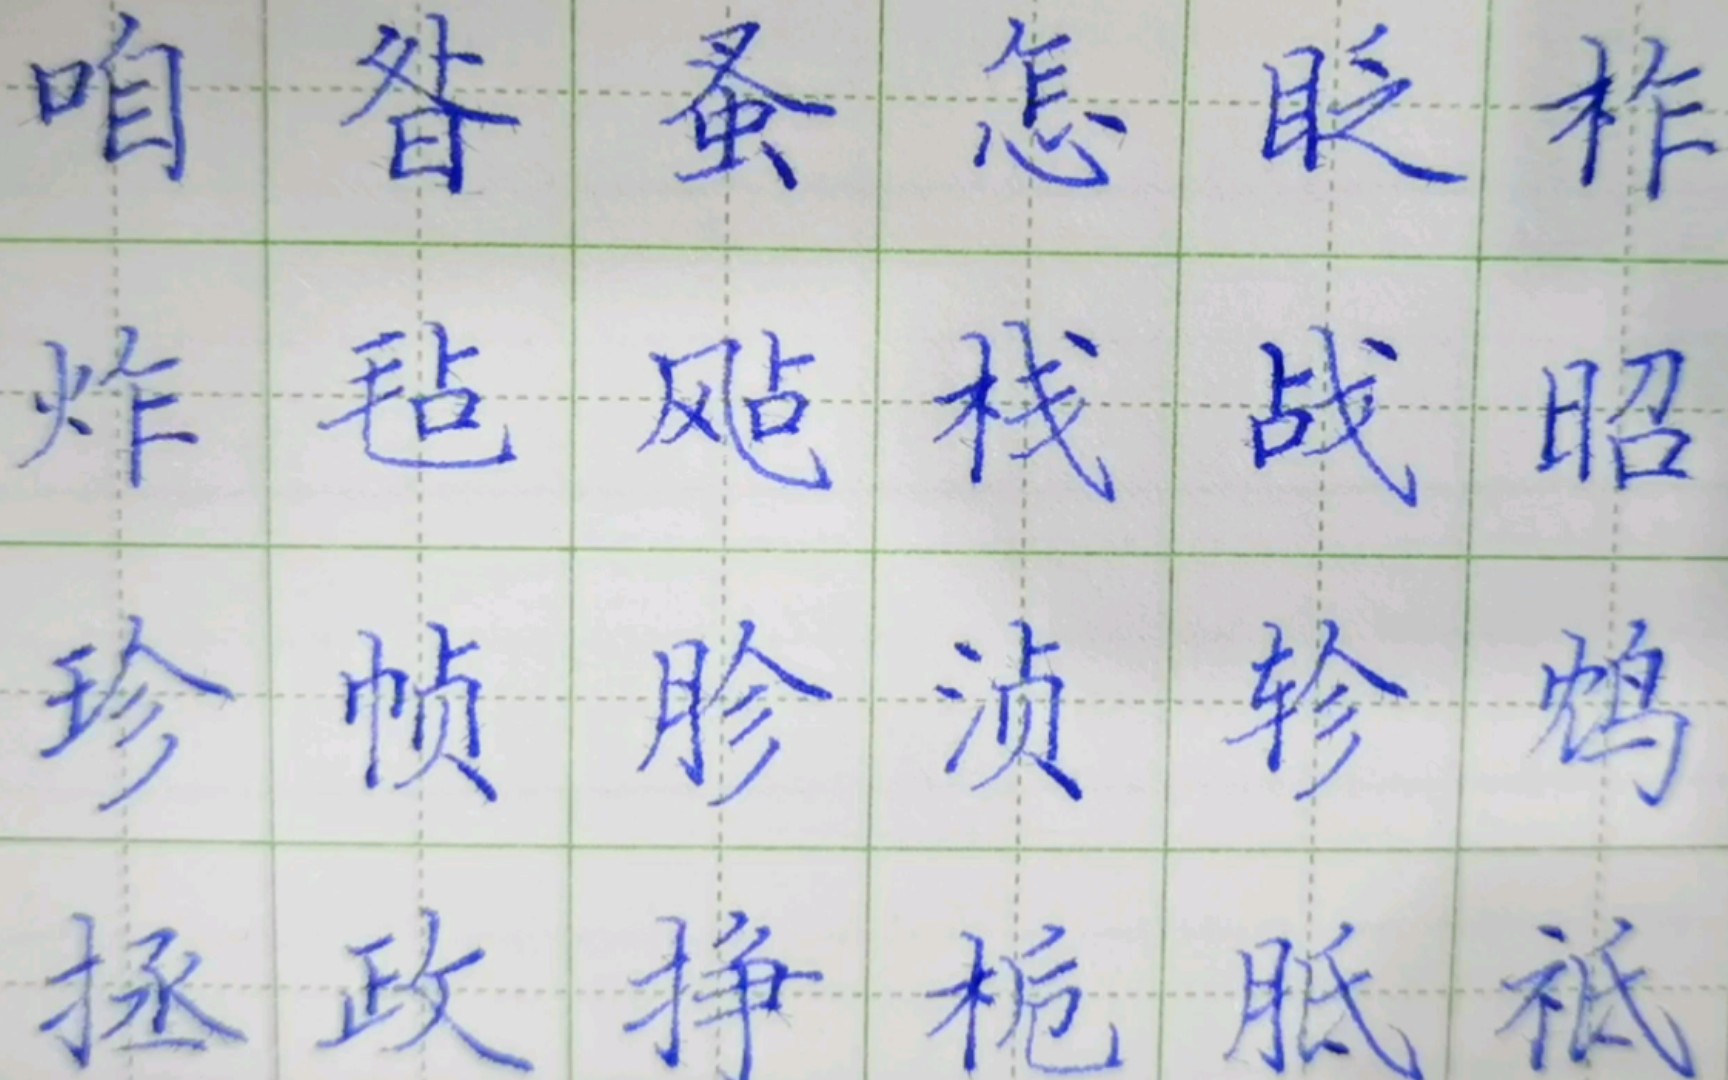 咱昝蚤怎眨柞
炸毡飐栈战昭
珍帧胗浈轸鸩
拯政挣栀胝祗